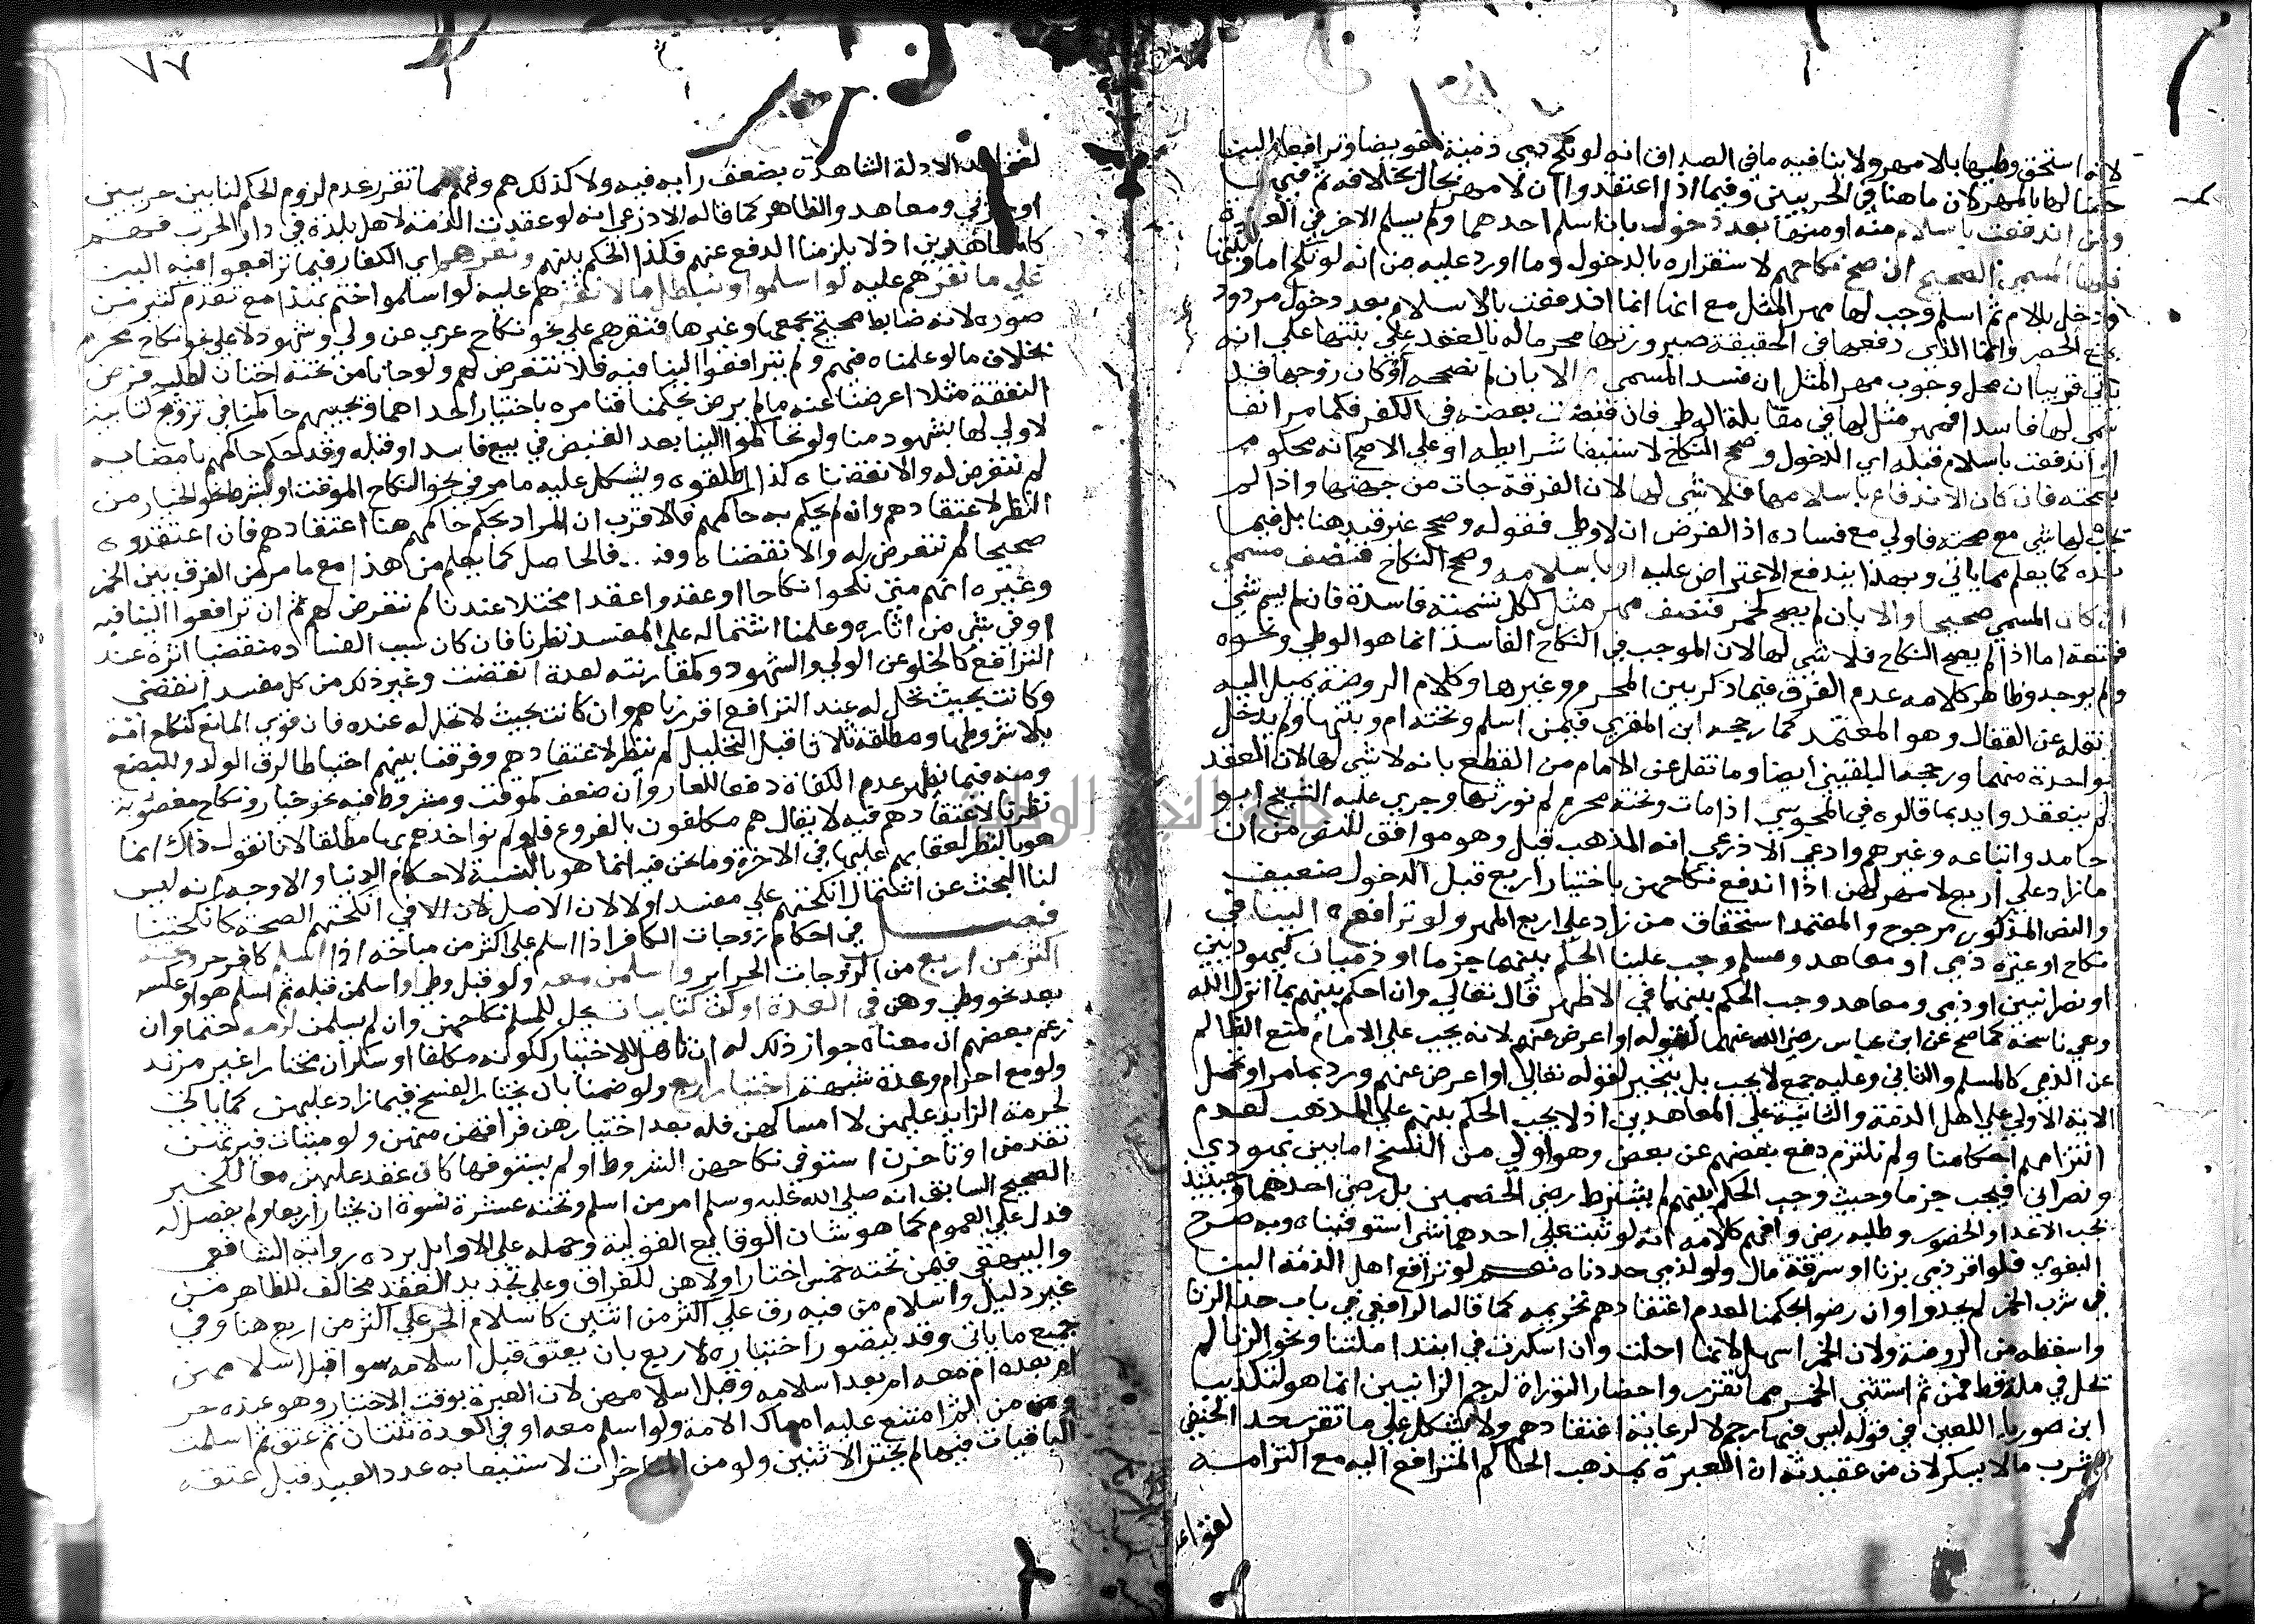 لانه استحق وطيها بلا مهر ولا ينافيه ما في الصداق انه لو نكح ذمي ذمية تفويضا وترافعا الينا
حكمنا لها بالمهر لان ما هنا في الحربيين وفيما اذا اعتقدوا ان لا مهر بحال بخلافه ثم فيهما
ومن اندفعت باسلام منه او منها بعد دخول بان اسلم احدهما ولم يسلم الاخر في العدة
فلها المسمى الصحيح ان صح نكاحهم لاستقراره بالدخول وما اورد عليه من انه لو نكح اما وبنتها
ودخل بالام ثم اسلم وجب لها مهر المثل مع انها انما اندفعت بالاسلام بعد دخول مردود
بمنع الحصر وانما الذي دفعها في الحقيقة صيرورتها محرما له بالعقد على بنتها على انه
ياتي قريبا ان محل وجوب مهر المثل ان فسد المسمى والا بان لم نصححه او كان زوجها قد
سمى لها فاسدا فمهر مثل لها في مقابلة الوطي فان قبضت بعضه في الكفر فكما مر انفا
او اندفعت باسلام قبله اي الدخول وصح النكاح لاستيفا شرايطه او على الاصح انه محكوم
بصحته فان كان الاندفاع باسلامها فلا شي لها لان الفرقة جات من جهتها واذا لم
يجب لها شي مع صحته فاولى مع فساده اذ الفرض ان لا وطي فقوله وصح غير قيد هنا بل فيما
بعده كما يعلم مما ياتي وبهذا يندفع الاعتراض عليه او باسلامه وصح النكاح فنصف مسمى
ان كان المسمى صحيحا والا بان لم يصح كخمر فنصف مهر مثل ككل تسمية فاسدة فان لم يسم شي
فمتعة اما اذا لم يصح النكاح فلا شي لها لان الموجب في النكاح الفاسد انما هو الوطي ونحوه
ولم يوجد وظاهر كلامه عدم الفرق فيما ذكر بين المحرم وغيرها وكلام الروضة يميل اليه
نقله عن القفال وهو المعتمد كما رجحه ابن المقري فيمن اسلم وتحته ام وبنتها ولم يدخل
بواحدة منهما ورجحه البلقيني ايضا وما نقل عن الامام من القطع بانه لا شي لها لان العقد
لم ينعقد وايد بما قالوه في المجوسي اذا مات وتحته محرم لم نورثها وجرى عليه الشيخ ابو
حامد واتباعه وغيرهم وادعى الاذرعي انه المذهب قيل وهو موافق للنص من ان
ما زاد على اربع لا مهر لهن اذا اندفع نكاحهن باختيار اربع قبل الدخول ضعيف
والنص المذكور مرجوح والمعتمد استحقاق من زاد على اربع المهر ولو ترافع الينا في
نكاح او غيره ذمي او معاهد ومسلم وجب علينا الحكم بينهما جزما او ذميان كيهوديين
او نصرانيين او ذمي ومعاهد وجب الحكم بينهما في الاظهر قال تعالى وان احكم بينهم بما انزل الله
وهي ناسخة كما صح عن ابن عباس رضي الله عنهما لقوله او اعرض عنهم لانه يجب على الامام منع الظالم
عن الذمي كالمسلم والثاني وعليه جمع لا يجب بل يتخير لقوله تعالى او اعرض عنهم ورد بما مر او تحمل
الاية الاولى على اهل الذمة والثانية على المعاهدين اذ لا يجب الحكم بينهم على المذهب لعدم
التزامهم احكامنا ولم نلتزم دفع بعضهم عن بعض وهو اولى من النسخ اما بين يهودي
ونصراني فيجب جزما وحيث وجب الحكم بينهم لم يشترط رضى الخصمين بل رضى احدهما وحينئذ
يجب الاعداء والحضور وطلبه رضى وافهم كلامه انه لو ثبت على احدهما شي استوفيناه وبه صرح
البغوي فلو اقر ذمي بزنا او سرقة مال ولو لذمي حددناه نعم لو ترافع اهل الذمة الينا
في شرب الخمر لم يحدوا وان رضوا بحكمنا لعدم اعتقادهم تحريمه كما قاله الرافعي في باب حد الزنا
واسقطه من الروضة ولان الخمر اسهل لانها احلت وان اسكرت في ابتداء ملتنا ونحو الزنا لم
يحل في ملة قط فمن ثم استثني الخمر مما تقرر واحضار التوراة لرجم الزانيين انما هو لتكذيب
ابن صوريا اللعين في قوله ليس فيها رجم لا لرعاية اعتقادهم ولا يشكل على ما تقرر حد الحنفي
بشرب ما لا يسكر لان من عقيدته ان العبرة بمذهب الحاكم المترافع اليه مع التزامه
لقواعد
٧٧
لقواعد الادلة الشاهدة بضعف رايه فيه ولا كذلك هم وفهم مما تقرر عدم لزوم الحكم لنا بين حربيين
او حربي ومعاهد والظاهر كما قاله الاذرعي انه لو عقدت الذمة لاهل بلدة في دار الحرب فهم
كالمعاهدين اذ لا يلزمنا الدفع عنهم فكذا الحكم بينهم ونقرهم اي الكفار فيما ترافعوا فيه الينا
على ما نقرهم عليه لو اسلموا ونبطل ما لا نقرهم عليه لو اسلموا ختم بهذا مع تقدم كثير من
صوره لانه ضابط صحيح يجمعها وغيرها فنقرهم على نحو نكاح عري عن ولي وشهود لا على نحو نكاح محرم
بخلاف ما لو علمناه فيهم ولم يترافعوا الينا فيه فلا نتعرض لهم ولو جانا من تحته اختان لطلب فرض
النفقة مثلا اعرضنا عنه ما لم يرض بحكمنا فنامره باختيار احداهما ويجيبهم حاكمنا في تزويج كتابية
لا ولي لها بشهود منا ولو تحاكموا الينا بعد القبض في بيع فاسد او قبله وقد حكم حاكمهم بامضايه
لم نتعرض له والا نقضناه كذا اطلقوه ويشكل عليه ما مر في نحو النكاح الموقت او بشرط نحو الخيار من
النظر لاعتقادهم وان لم يحكم به حاكمهم فالاقرب ان المراد بحكم حاكمهم هنا اعتقادهم فان اعتقدوه
صحيحا لم نتعرض له والا نقضناه فالحاصل كما يعلم من هذا مع ما مر من الفرق بين الخمر
وغيره انهم متى نكحوا نكاحا او عقدوا عقدا مختلا عندنا لم نتعرض لهم ثم ان ترافعوا الينا فيه
او في شي من اثاره وعلمنا اشتماله على المفسد نظرنا فان كان سبب الفساد منقضيا اثره عند
الترافع كالخلو عن الولي والشهود وكمقارنته لعدة انقضت وغير ذلك من كل مفسد انقضى
وكانت بحيث تحل له عند الترافع اقررناهم وان كانت بحيث لا تحل له عنده فان قوي المانع كنكاح امة
بلا شروطها ومطلقة ثلاثا قبل التحليل لم ننظر لاعتقادهم وفرقنا بينهم احتياطا لرق الولد وللبضع
ومنه فيما يظهر عدم الكفاة دفعا للعار وان ضعف كموقت ومشروط فيه نحو خيار ونكاح مغصوبة
نظرنا لاعتقادهم فيه لا يقال هم مكلفون بالفروع فلم لم نواخذهم بها مطلقا لانا نقول ذاك انما
هو بالنظر لعقابهم عليها في الاخرة وما نحن فيه انما هو بالنسبة لاحكام الدنيا والاوجه انه ليس
لنا البحث عن اشتمال انكحتهم على مفسد او لا لان الاصل في انكحتهم الصحة كانكحتنا
فصل في احكام زوجات الكافر اذا اسلم على اكثر من مباحه اذا اسلم كافر حر وتحته
اكثر من اربع من الزوجات الحراير واسلمن معه ولو قبل وطي او اسلمن قبله ثم اسلم هو او عكسه
بعد نحو وطي وهن في العدة او كن كتابيات يحل للمسلم نكاحهن وان لم يسلمن لزمه حتما وان
زعم بعضهم ان معناه جواز ذلك له ان تاهل للاختيار لكونه مكلفا او سكران مختارا غير مرتد
ولو مع احرام وعدة شبهة اختيار اربع ولو ضمنا بان يختار الفسخ فيما زاد عليهن كما ياتي
لحرمة الزايد عليهن لا امساكهن فله بعد اختيارهن فراقهن منهن ولو ميتات فيرثهن
تقدمن او تاخرن استوفى نكاحهن الشروط او لم يستوفها كان عقد عليهن معا للخبر
الصحيح السابق انه صلى الله عليه وسلم امر من اسلم وتحته عشرة نسوة ان يختار اربعا ولم يفصل له
فدل على العموم كما هو شان الوقايع القولية وحمله على الاوايل يرده رواية الشافعي
والبيهقي فيمن تحته خمس اختار اولاهن للفراق وعلى تجديد العقد مخالف للظاهر من
غير دليل واسلام من فيه رق على اكثر من اثنين كاسلام الحر على اكثر من اربع هنا وفي
جميع ما ياتي وقد يتصور اختياره لاربع بان يعتق قبل اسلامه سوا قبل اسلامهن
ام بعده ام معه ام بعد اسلامه وقبل اسلامهن لان العبرة بوقت الاختيار وهو عنده حر
ومن ثم امتنع عليه امساك الامة ولو اسلم معه او في العدة ثنتان ثم عتق ثم اسلمت
الباقيات فيهما لم يختر الا ثنتين ولو من المتاخرات لاستيفايه عدد العبيد قبل عتقه